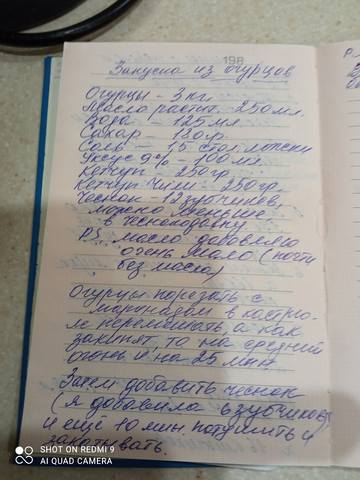 198
Закуска из огурцов
Огурцы - 3 кг.
Масло растит. 250 мл.
Вода - 125 мл.
Сахар - 180 гр.
Соль - 1,5 стол. ложки
Уксус 9% - 100 мл.
Кетчуп - 250 гр.
Кетчуп Чили - 250 гр.
Чеснок - 12 зубчиков,
можно меньше
в чеснокодавку
PS. масло добавляю
очень мало (почти
без масла)
Огурцы порезать с
маринадом в кастрю-
ле перемешать, а как
закипят то на средний
огонь и на 25 мин
Затем добавить чеснок
(я добавила 8 зубчиков)
и еще 10 мин потушить и
закатывать.
SHOT ON REDMI 9
AI QUAD CAMERA